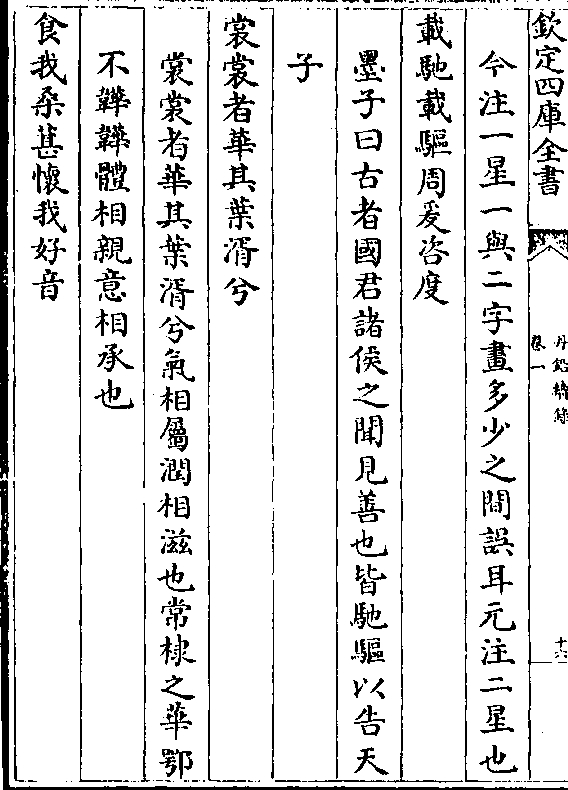 欽定四庫全書
丹鉛摘錄
卷一
十六
今注一星一與二字畫多少之間誤耳元注二星也
載馳載驅周爰咨度
墨子曰古者國君諸侯之聞見善也皆馳驅以告天
子
裳裳者華其葉湑兮
裳裳者華其葉湑兮氣相屬潤相滋也常棣之華鄂
不韡韡體相親意相承也
食我桑葚懷我好音